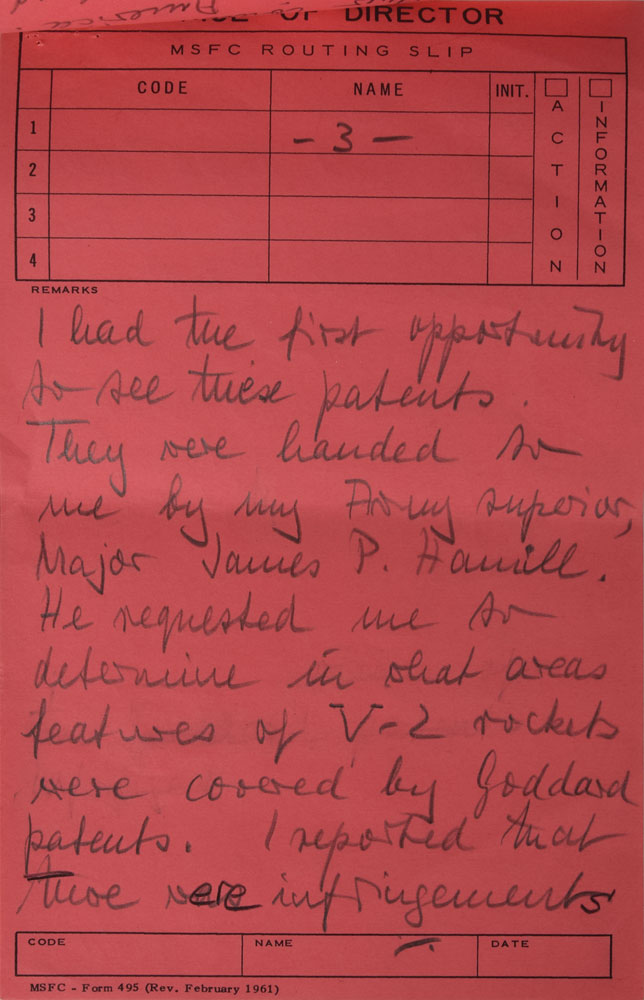 America.
OFFICE OF DIRECTOR
MSFC ROUTING SLIP
CODE NAME INIT. ACTION INFORMATION
1 - 3 -
2
3
4
REMARKS
I had the first opportunity
to see these patents.
They were handed to
me by my Army superior,
Major James P. Hamill.
He requested me to
determine in what areas
features of V-2 rockets
were covered by Goddard
patents. I reported that
there were infringements
CODE NAME DATE
MSFC - Form 495 (Rev. February 1961)